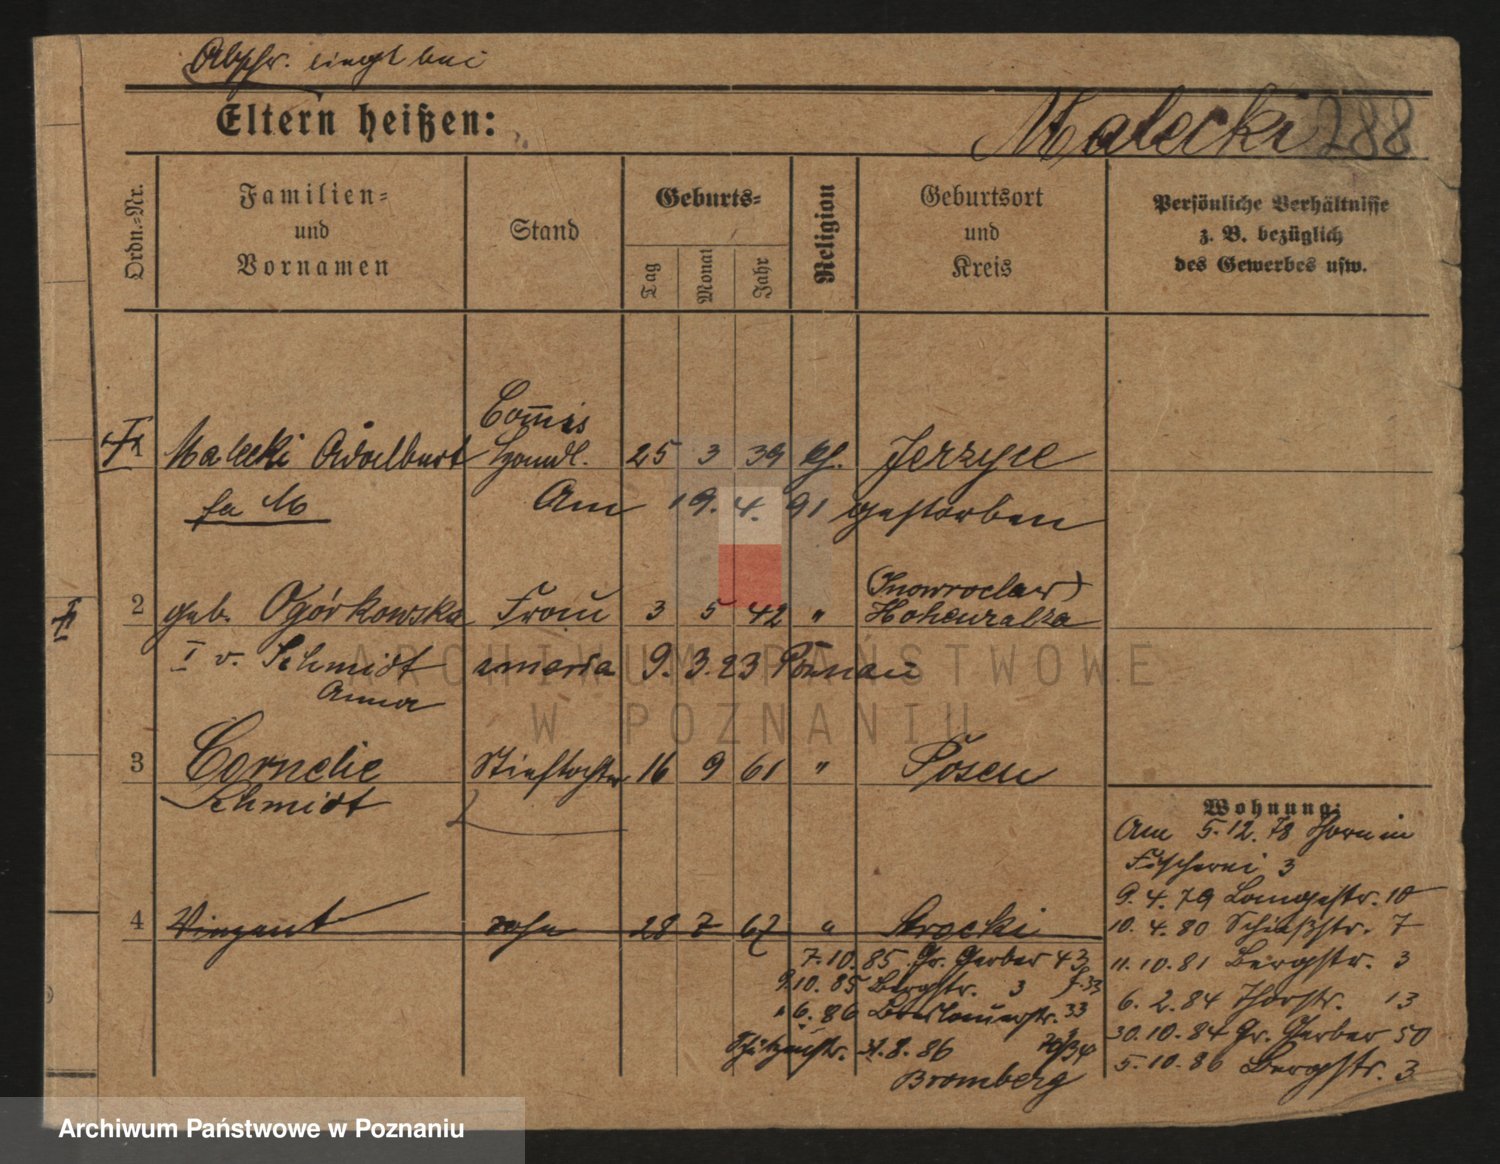 Abschr. liegt bei
Eltern heißen:
Malecki 288
Ordn.-Nr.
Familien-
und
Vornamen
Stand
Geburts-
Tag
Monat
Jahr
Religion
Geburtsort
und
Kreis
Persönliche Verhältnisse
z. B. bezüglich
des Gewerbes usw.
Commis
1 Malecki Adalbert Handl. 25 3 39 kh. Jerzyce
fa M
Am 19. 4. 91 gestorben
(Inowroclaw)
2 geb. Ogórkowska Frau 3 5 42 " Hohensalza
I v. Schmidt 9. 3. 23 Poznań
Anna
3 Cornelie Stieftochter 16 9 61 " Posen
Schmidt
4 Vinzent Sohn 28 7 67 "
7. 10. 85 Gr. Gerber 43
9. 10. 85 Bergstr. 3
6. 86 Breslauerstr. 33
Schützenstr. 8. 86
Bromberg
Wohnung:
Am 5. 12. 78
Fischerei 3
9. 4. 79 Langestr. 10
10. 4. 80 Schießstr. 7
11. 10. 81 Bergstr. 3
6. 2. 84 Thorstr. 13
30. 10. 84 Gr. Gerber 50
5. 10. 86 Bergstr. 3
ARCHIWUM PAŃSTWOWE
W POZNANIU
Archiwum Państwowe w Poznaniu